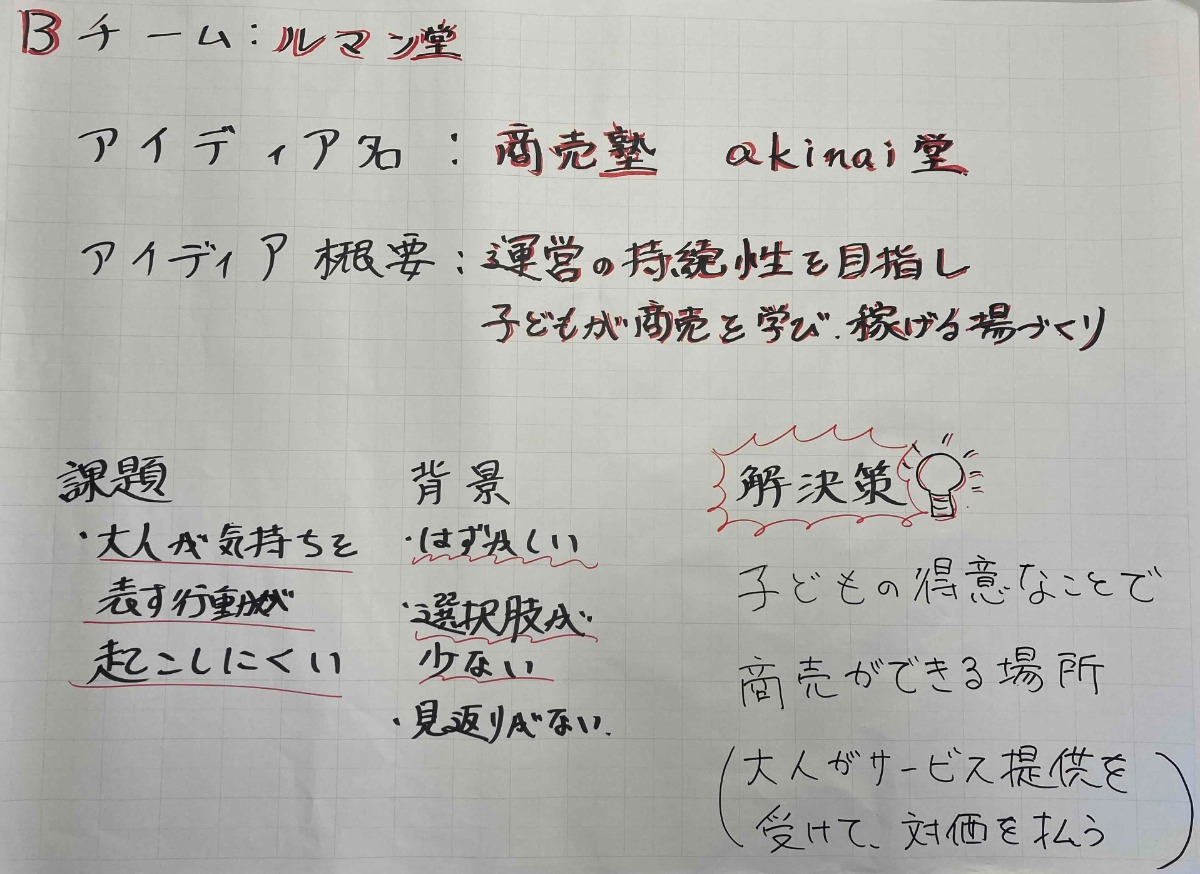 Bチーム：ルマン堂
アイディア名：商売塾 akinai堂
アイディア概要：運営の持続性を目指し
子どもが商売を学び.稼げる場づくり
課題
・大人が気持ちを
表す行動が
起こしにくい
背景
・はずかしい
・選択肢が
少ない
・見返りがない.
解決策
子どもの得意なことで
商売ができる場所
(大人がサービス提供を
受けて、対価を払う)